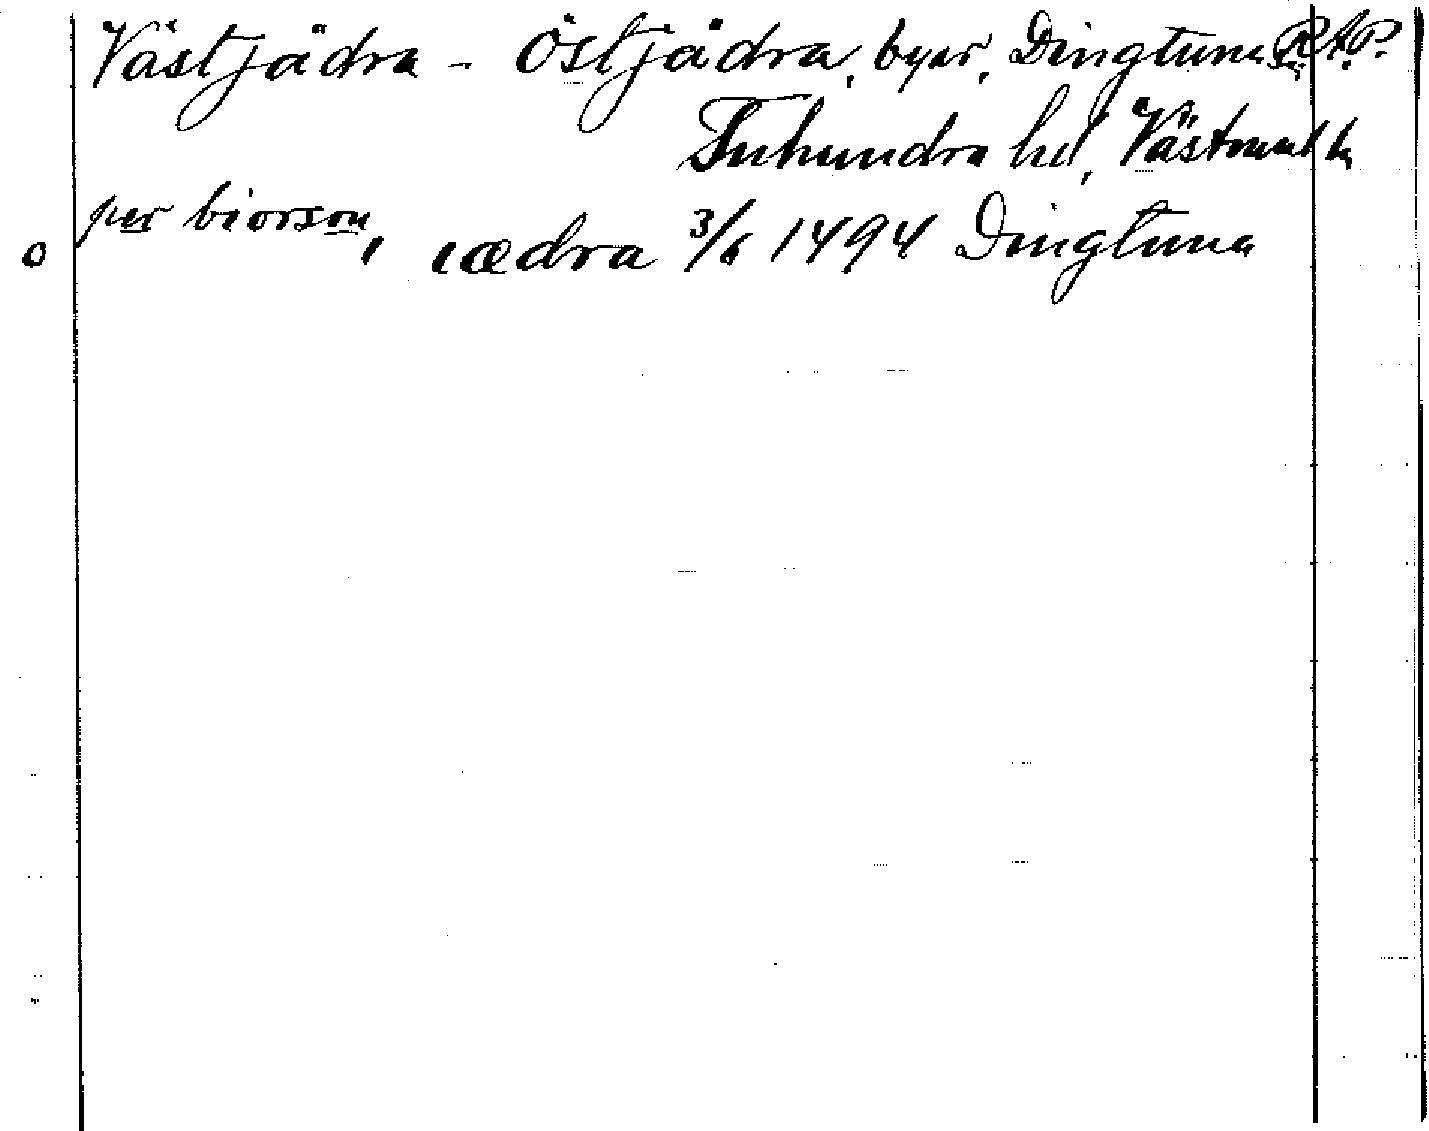 Västjädra - Östjädra, byar, Dingtuna RAP.
Tuhundra hd, Västmanl
per biorson, iædra 3/6 1494 Dingtuna
o